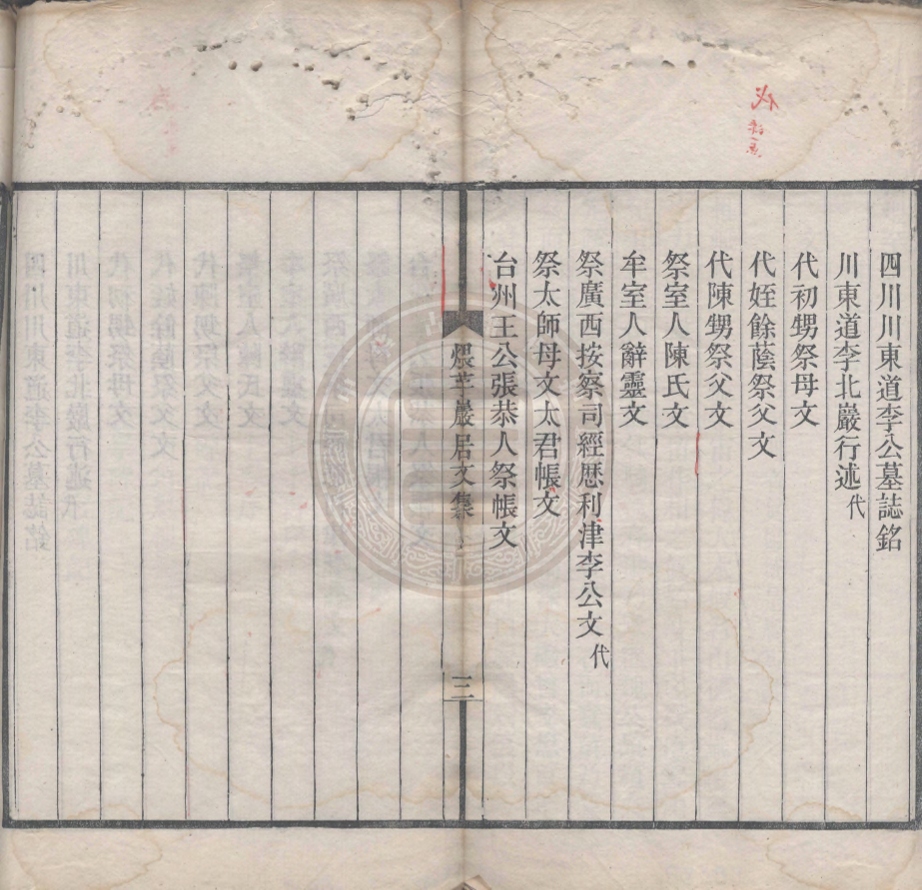 四川川東道李公墓誌銘
川東道李北巖行述代
代初甥祭母文
代姪餘蔭祭父文
代陳甥祭父文
祭室人陳氏文
牟室人辭靈文
祭廣西按察司經歷利津李公文代
祭太師母文太君帳文
台州王公張恭人祭帳文
煨芋巖居文集
三